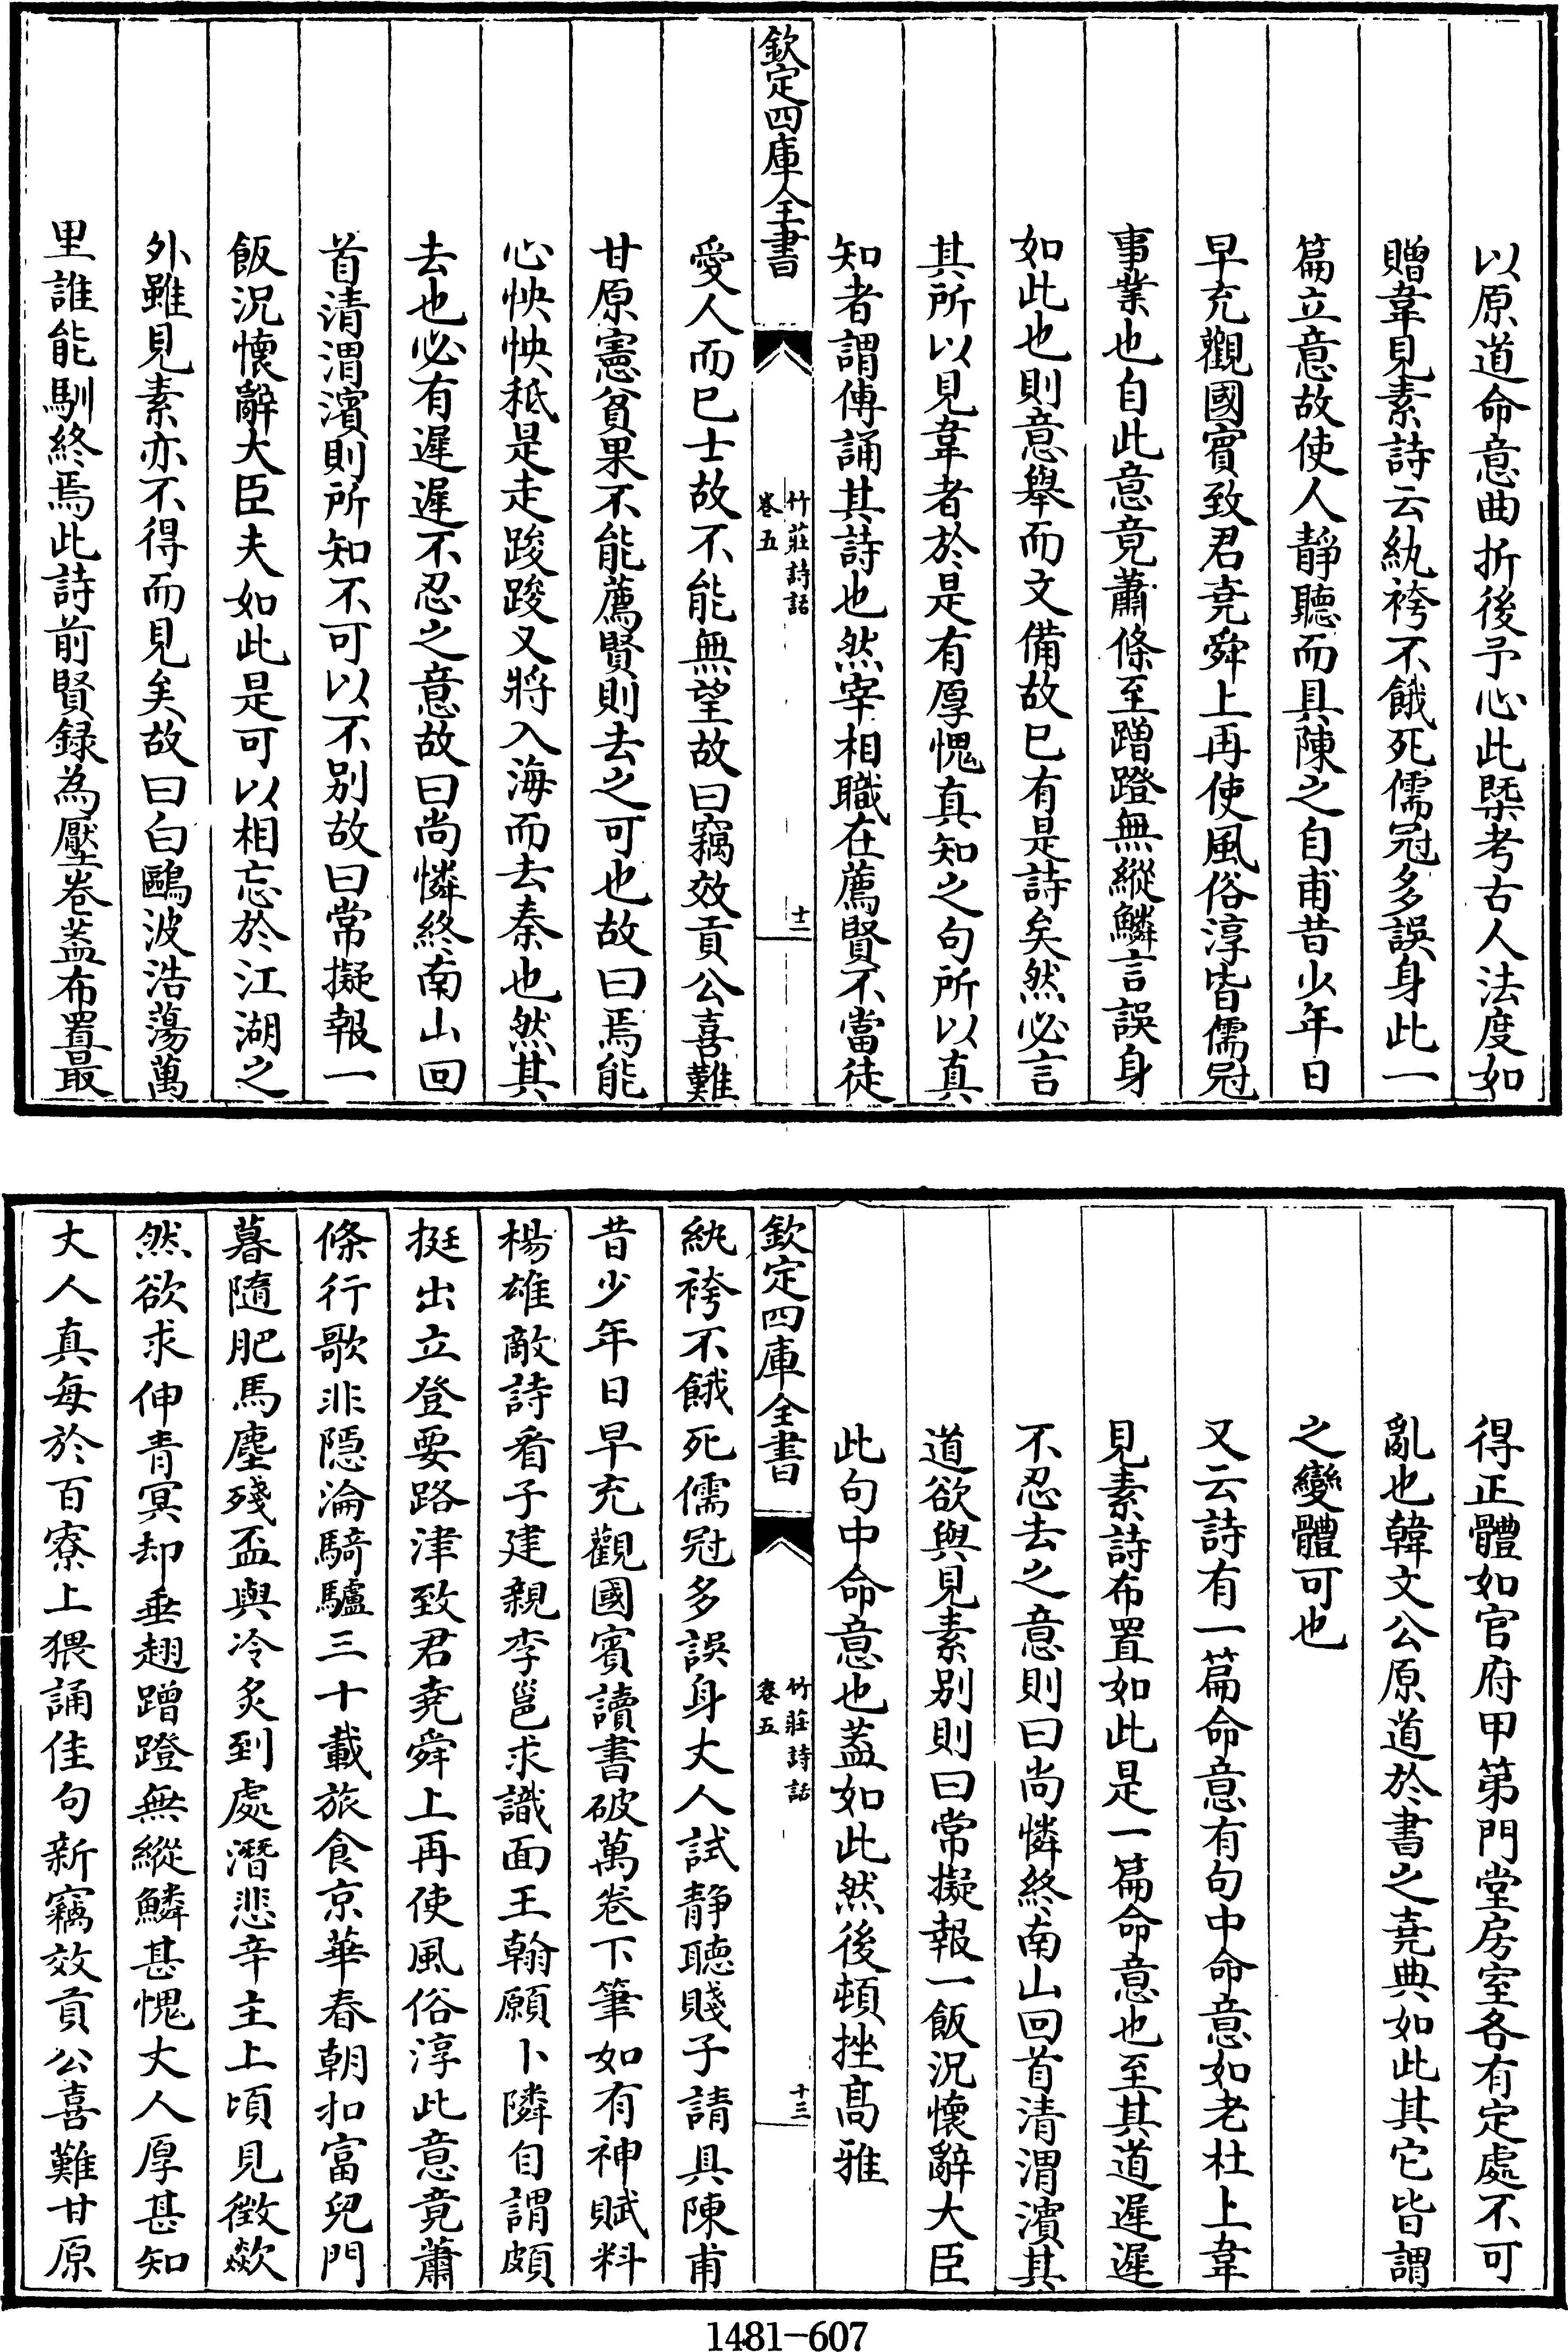 以原道命意曲折後予心此槩考古人法度如
贈韋見素詩云紈袴不餓死儒冠多誤身此一
篇立意故使人靜聽而具陳之自甫昔少年日
早充觀國賓致君堯舜上再使風俗淳皆儒冠
事業也自此意竟蕭條至蹭蹬無縱鱗言誤身
如此也則意舉而文備故已有是詩矣然必言
其所以見韋者於是有厚愧真知之句所以真
知者謂傳誦其詩也然宰相職在薦賢不當徒
欽定四庫全書
竹莊詩話
卷五
十二
愛人而已士故不能無望故曰竊效貢公喜難
甘原憲貧果不能薦賢則去之可也故曰焉能
心怏怏秪是走踆踆又將入海而去秦也然其
去也必有遲遲不忍之意故曰尚憐終南山回
首清渭濱則所知不可以不别故曰常擬報一
飯況懷辭大臣夫如此是可以相忘於江湖之
外雖見素亦不得而見矣故曰白鷗波浩蕩萬
里誰能馴終焉此詩前賢録為壓卷葢布置最
得正體如官府甲第門堂房室各有定處不可
亂也韓文公原道於書之堯典如此其它皆謂
之變體可也
又云詩有一篇命意有句中命意如老杜上韋
見素詩布置如此是一篇命意也至其道遲遲
不忍去之意則曰尚憐終南山回首清渭濱其
道欲與見素别則曰常擬報一飯況懷辭大臣
此句中命意也葢如此然後頓挫髙雅
欽定四庫全書
竹莊詩話
卷五
十三
紈袴不餓死儒冠多誤身丈人試靜聽賤子請具陳甫
昔少年日早充觀國賓讀書破萬卷下筆如有神賦料
楊雄敵詩看子建親李邕求識面王翰願卜隣自謂頗
挺出立登要路津致君堯舜上再使風俗淳此意竟蕭
條行歌非隱淪騎驢三十載旅食京華春朝扣富兒門
暮隨肥馬塵殘盃與冷炙到處潛悲辛主上頃見徵歘
然欲求伸青冥却垂翅蹭蹬無縱鱗甚愧丈人厚甚知
丈人真每於百寮上猥誦佳句新竊效貢公喜難甘原
1481-607